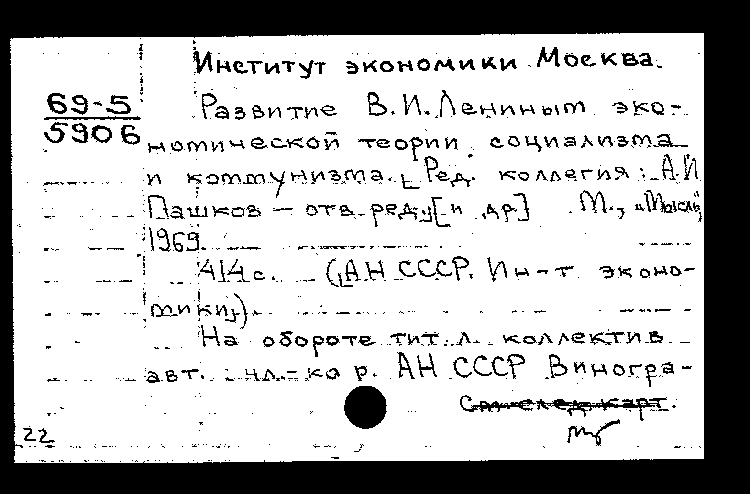 Институт экономики. Москва.
69-5
5906
Развитие В.И.Лениным эко-
номической теории социализма
и коммунизма. [Ред. коллегия: А.И.
Пашков - отв. ред.] [и др.] М., "Мысль",
1969.
414 с. (АН СССР. Ин-т эконо-
мики).
На обороте тит. л. коллектив
авт.: чл.-кор. АН СССР Виногра-
См. след. карт.
22